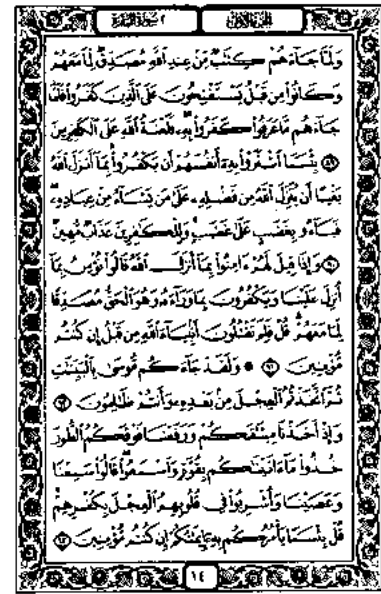 الجزء الأول
٢ سورة البقرة
وَلَمَّا جَآءَهُمْ كِتَٰبٌ مِّنْ عِندِ ٱللَّهِ مُصَدِّقٌ لِّمَا مَعَهُمْ
وَكَانُوا۟ مِن قَبْلُ يَسْتَفْتِحُونَ عَلَى ٱلَّذِينَ كَفَرُوا۟ فَلَمَّا
جَآءَهُم مَّا عَرَفُوا۟ كَفَرُوا۟ بِهِۦ فَلَعْنَةُ ٱللَّهِ عَلَى ٱلْكَٰفِرِينَ
﴿٨٩﴾ بِئْسَمَا ٱشْتَرَوْا۟ بِهِۦٓ أَنفُسَهُمْ أَن يَكْفُرُوا۟ بِمَآ أَنزَلَ ٱللَّهُ
بَغْيًا أَن يُنَزِّلَ ٱللَّهُ مِن فَضْلِهِۦ عَلَىٰ مَن يَشَآءُ مِنْ عِبَادِهِۦ
فَبَآءُو بِغَضَبٍ عَلَىٰ غَضَبٍ وَلِلْكَٰفِرِينَ عَذَابٌ مُّهِينٌ
﴿٩٠﴾ وَإِذَا قِيلَ لَهُمْ ءَامِنُوا۟ بِمَآ أَنزَلَ ٱللَّهُ قَالُوا۟ نُؤْمِنُ بِمَآ
أُنزِلَ عَلَيْنَا وَيَكْفُرُونَ بِمَا وَرَآءَهُۥ وَهُوَ ٱلْحَقُّ مُصَدِّقًا
لِّمَا مَعَهُمْ قُلْ فَلِمَ تَقْتُلُونَ أَنۢبِيَآءَ ٱللَّهِ مِن قَبْلُ إِن كُنتُم
مُّؤْمِنِينَ ﴿٩١﴾ ۞ وَلَقَدْ جَآءَكُم مُّوسَىٰ بِٱلْبَيِّنَٰتِ
ثُمَّ ٱتَّخَذْتُمُ ٱلْعِجْلَ مِنۢ بَعْدِهِۦ وَأَنتُمْ ظَٰلِمُونَ ﴿٩٢﴾
وَإِذْ أَخَذْنَا مِيثَٰقَكُمْ وَرَفَعْنَا فَوْقَكُمُ ٱلطُّورَ
خُذُوا۟ مَآ ءَاتَيْنَٰكُم بِقُوَّةٍ وَٱسْمَعُوا۟ قَالُوا۟ سَمِعْنَا
وَعَصَيْنَا وَأُشْرِبُوا۟ فِى قُلُوبِهِمُ ٱلْعِجْلَ بِكُفْرِهِمْ
قُلْ بِئْسَمَا يَأْمُرُكُم بِهِۦٓ إِيمَٰنُكُمْ إِن كُنتُم مُّؤْمِنِينَ ﴿٩٣﴾
١٤